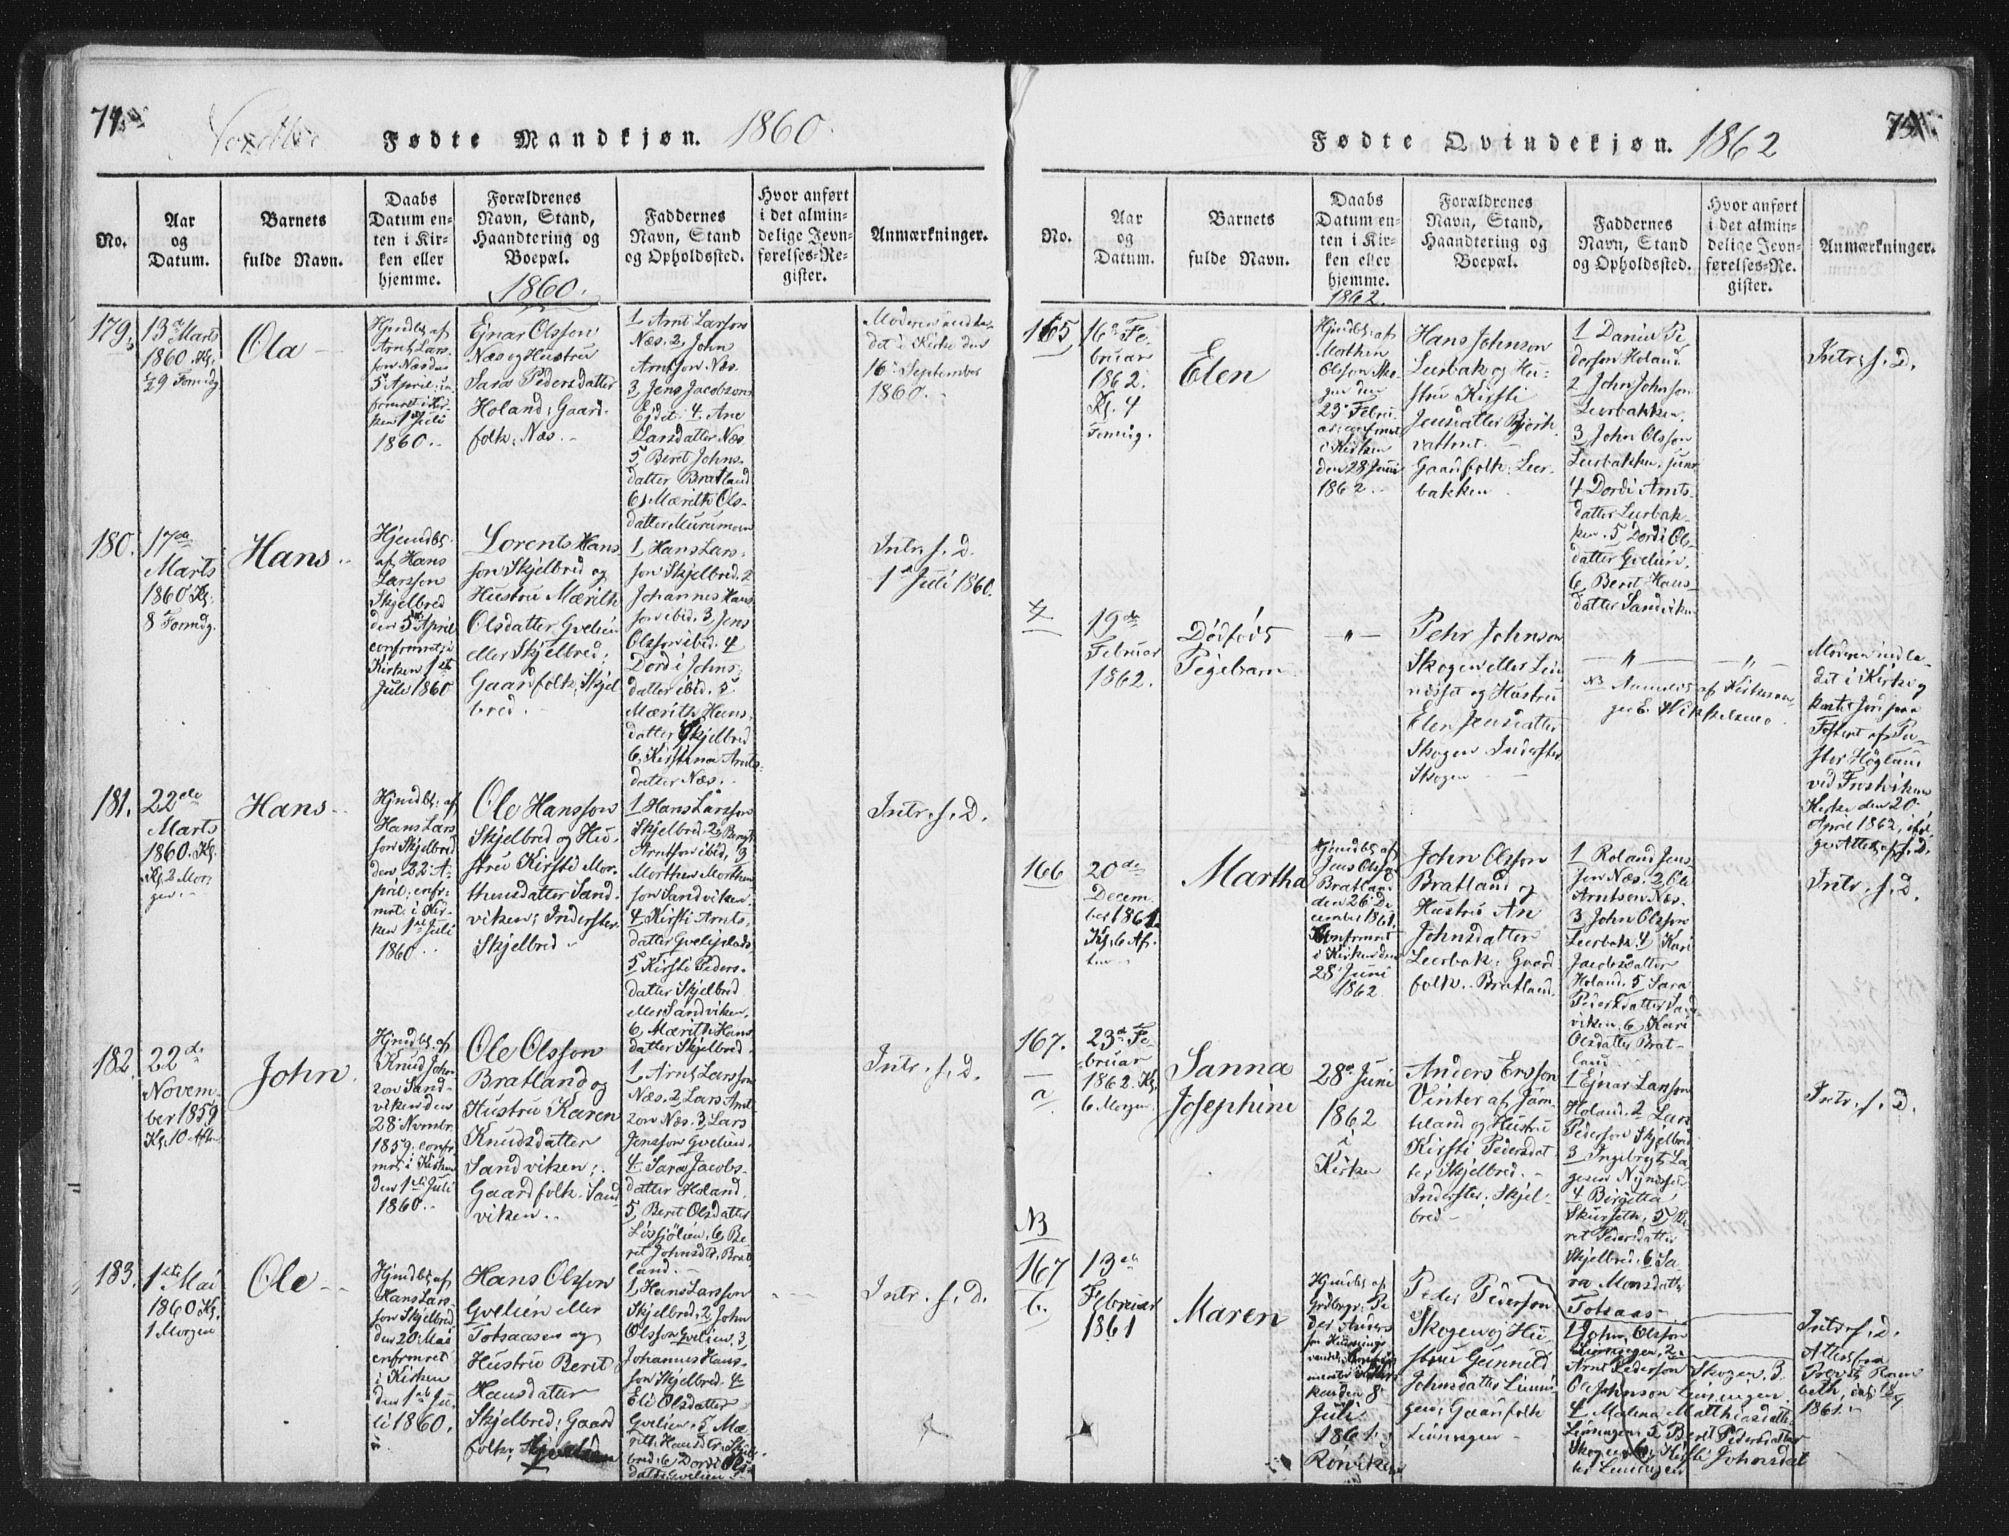 74
Fødte Mandkjøn. 1860.
No.
Aar
og
Datum.
Barnets
fulde Navn.
Daabs
Datum en-
ten i Kir-
ken eller
hjemme.
Forældrenes
Navn, Stand,
Haandtering og
Boepæl.
1860.
Faddernes
Navn, Stand
og Opholdssted.
Hvor anført
i det almin-
delige Jevn-
førelses-Re-
gister.
Anmærkninger.
179
13de Marts
1860. Kl.
Formdg
Ola
Hjmdbt af
Arnt Lars-
son Næs den
5 April;
i Kir-
ken 1ste Juli
1860.
Ejnar Olsson
Næs og Hustru
Sara Pedersdatter
Holand; Gaard-
folk; Næs.
1 Arnt Larsson
Næs. 2, John
Arntson Næs.
3 Jens Jacobson
Ejdet. 4. Ane
Larsdatter Næs
5 Beret Johns-
datter Bratland
6, Mærith Ols-
datter Murumoen
Moderen indle-
det i Kirke den
16de September
1860.
180.
17de
Marts
1860 Kl.
8 Formdg.
Hans
Hjemdbt
af Hans
Larsson
Skjelbred
den 5te April
confirmret i
Kirken 1ste
Juli 1860
Lorents Hans-
son Skjelbred og
Hustru Mærith
Olsdatter Gvelien
eller Skjelbred;
Gaardfolk; Skjel
bred.
1, Hans Lars-
son Skjelbred. 2
Johannes Hans
son ibid. 3, Jens
Olsson ibid. 4
Dordi Johns-
datter ibid. 5
Mærith Hans-
datter Skjelbred
6, Kirstina Arnts-
datter Næs.
Intr. f. D.
1 Juli 1860.
181.
22de
Marts
1860. Kl.
2 Mor-
gen.
Hans
Hjmdbt. af
Hans Lars
son Skjelbred
den 22 A-
pril; enfr-
mret. i Kir-
ken 1ste Juli
1860
Ole Hansson
Skjelbred og Hu-
stru Kirsti Mor-
thensdatter Sand-
viken; Inderster
Skjelbred
1 Hans Larsson
Skjelbred. 2, Bengt
Arntson ibid, 3
Morthen Morthen
son Sandviken
4 Kirsti Arnts-
datter
5 Kirsti Peders-
datter Skjelbred
eller Sandviken.
6, Mærith Hans
datter Skjelbred.
Intr. f. D.
182.
22de
Novem-
ber 1859
Kl. 10 Aften
John
Hjmdbt af
Knud John-
son Sand-
viken den
28 Nvmbr.
1859; confr
mret i Kirken
den 1ste Juli
1860.
Ole Olsson
Bratland og
Hustru Karen
Knudsdatter
Sandviken;
Gaardfolk. Sand
viken.
1, Arnt Larsson
Næs. 2, Lars Arnt-
zon Næs. 3, Lars
Jensson Gvelien.
4 Sara Jacobs-
datter Holand.
5, Beret Olsdatter
6, Be-
ret Johnsdtr. Brat
land.
Intr. f. D.
183.
1ste Mai
1860 Kl.
1 Morgen
Ole
Hjmdbt. af
Hans Lars-
son Skjelbred
den 20 Mai
enfrmret
i Kirken
den 1ste Ju-
li 1860.
Hans Olsson
Gvelien eller
Totsaasen og
Hustru Beret
Hansdatter
Skjelbred; Gaard
folk;
1 Hans Larsson
Skjelbred. 2, John
Olsson Gvelien. 3,
Johannes Hans-
son Skjelbred. 4
Eli Olsdatter
Gvelien. 5 Mæ-
rith Hansdtr. Skjel-
bred; 6, Dordi Ols
datter Gvelien
Intr. f. D.
75
Fødte Qvindekjøn. 1862
No.
Aar
og
Datum.
Barnets
fulde Navn.
Daabs
Datum en-
ten i Kir-
ken eller
hjemme.
1862.
Forældrenes
Navn, Stand,
Haandtering og
Boepæl.
Faddernes
Navn, Stand
og Opholdssted.
Hvor anført
i det almin-
delige Jevn-
førelses-Re-
gister.
Anmærkninger.
165
16de Fe-
bruar
1862.
Kl. 4
Formdg.
Elen
Hjmdbt af
Morthen
Olsson Sko-
gen den
23de Febru-
ar; confrmret
i Kirken
den 28 Juni
1862.
Hans Johnson
Leerbak og Hu-
stru Kirsti
Jensdatter Bjørk-
vattnet.
Gaardfolk. Leer-
bakken
1 Daniel Pe-
dersen Holand
2 John Johnson
Leerbakken.
3 John Olsson
Leerbakken junr
4 Dordi Arnts-
datter Leerbak-
ken. 5 Dordi Ols-
datter Gvelien.
6, Beret Hans-
datter Sandviken
Intr. f. D.
19de
Februar
1862.
Dødfødt
Pigebarn
Pehr Johnson
Skogen eller
og Hustru
Elen Jensdatter
Skogen Inderster
Skogen
NB Anmeldt af Kirkesan-
ger E. Mikkelsen.
Moderen indle-
det i Kirke og
kastet Jord paa
Fosteret af Pa-
stor Höglund
ved Frostviken
Kirke den 20
April 1862, iføl-
ge Attest. f. D.
166
20de
Decem-
ber 1861.
Kl. 6 Af-
ten
Martha
Hjmdbt af
Jens Olsson
Bratland
den 26 De
cember 1861.
Confrmret
i Kirken den
28 Juni
1862
John Olsson
Bratland og
Hustru An
Johnsdatter
Leerbak; Gaard
folk. Bratland.
1 Roland Jens-
son Næs. 2, Ole
Arntson Næs.
3 John Olsson
Leerbak 4, Kari
Jacobsdatter
Holand. 5 Sara
Pedersdatter Sand-
viken. 6, Kari
Olsdatter Brat-
land
Intr. f. D.
167.
a
23de Fe-
bruar
1862. Kl.
6 Morgen
Sanna
Josephine
28de Juni
1862
i
Kirken
Anders Ersson
Vinter af Jäm-
teland og Hustru
Kirsti Pedersdat
ter Skjelbred.
Inderster. Skjel-
bred
1 Ejnar Larsson
Holand. 2 Lars
Pederson Skjelbred
3 Ingebrygt
4 Birgetta
5, Be-
ret Pedersdatter
Skjelbred. 6, Sa-
ra Monsdatter
Totsaas
Intr. f. D.
NB
167
b.
13de
Februar
1861
Karen
Hjmdbt af
Pe
der Anders
son
den 8de
Juli
1861 i
Rørviken
Peder Pederson
Skogen og Hu-
stru Gunnild
Johnsdatter Linni-
gen; Gaardfolk
Linningen
1 John Olsson
Linningen. 2
Arnt Pederson Skogen. 3.
Ole Johnson Linningen.
4 Malena Matthiasdatter
Linningen. 5 Beret Pedersdatter
Skogen. 6, Johnsdat
ter Linningen
Intr. f. D.
1861.